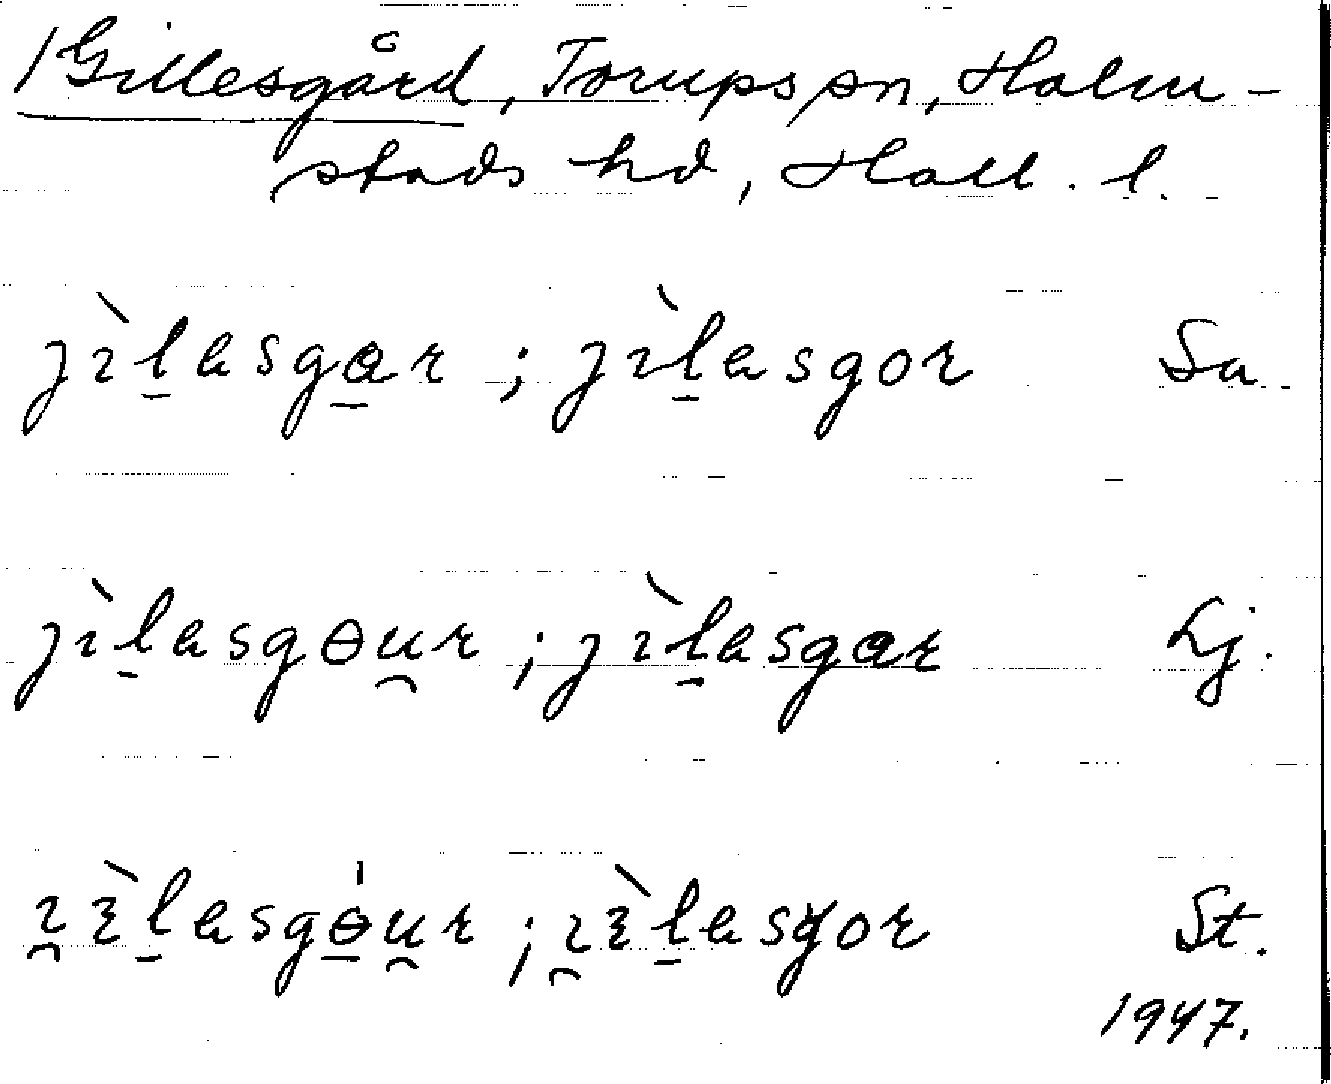 /Gillesgård, Torups sn, Halm-
stads hd, Hall. l.
jɪ̀l̠asga̠r ; jɪ̀l̠asgor Sa
jɪ̀l̠asgɵu̯r ; jɪ̀l̠asgar Lj.
ɪ̯ɛ̀l̠asgɵ̠́u̯r ; ɪ̯ɛ̀l̠asgor St.
1947.